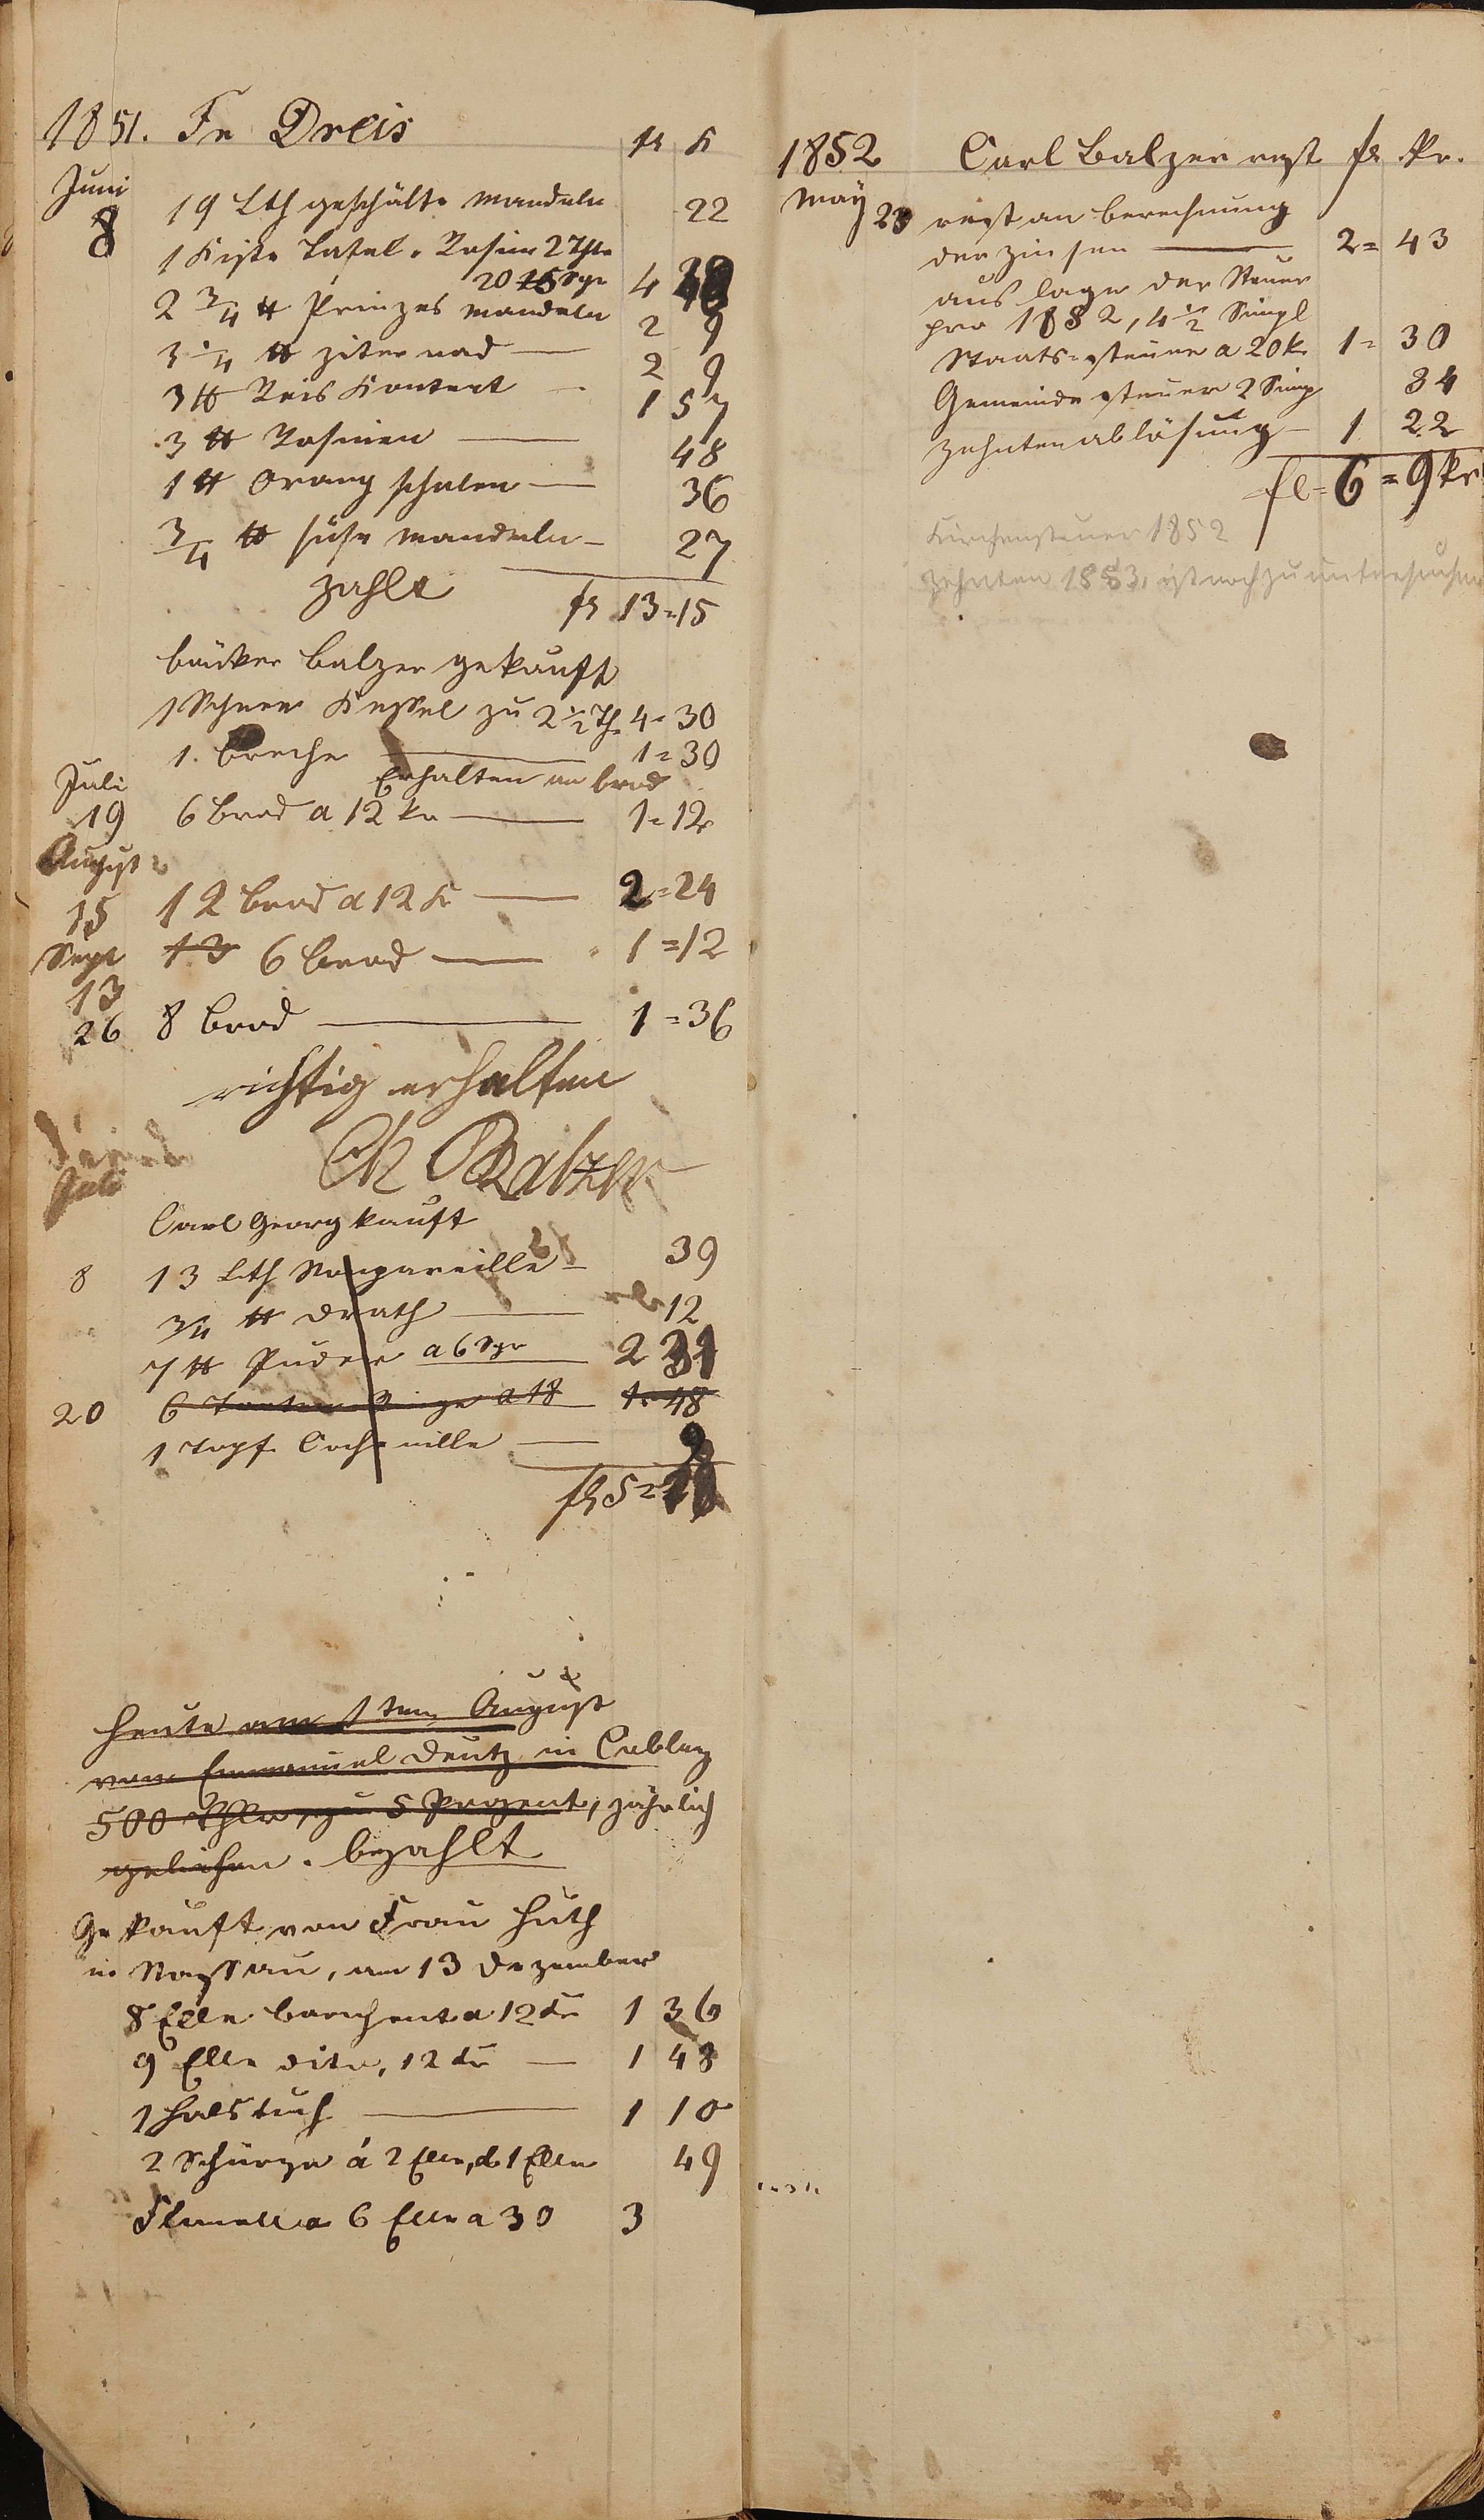 1851. Fr Dreis fl K
Juni
8 19 Lth geschälte Mandeln 22
1 Kiste Tafel-Rosine 2 Thlr
20 Sgr 4
2 3/4 ℔ Prinzes Mandeln 2 9
3 1/4 ℔ Ziternad 2 9
3 ℔ Reis Kontent 1 57
3 ℔ Rosinen 48
1 ℔ Orang schalen 36
3/4 ℔ süße Mandeln 27
zahlt fl 13=15
bäcker Balzer gekauft
1 Schnee Kessel zu 2 1/2 Th 4=30
1. Breche 1=30
Erhalten an brod
Juli
19 6 brod a 12 kr 1=12
August
15 12 brod a 12 K 2=24
Sept 13 6 brod 1=12
13
26 8 brod 1=36
richtig erhalten
Ch Balzer
Juli
Carl Georg kauft
8 13 Lth Nonpareille 39
3/4 ℔ Drath 12
7 ℔ Puder a 6 Sgr 2 31
20 6 Ringe a 18 1=48
1 Topf Cochenille 9
fl 5=
Heute am 1ten August
von Emmanuel Deutz in Coblenz
500 Thlr, zu 5 Prozent, jährlich
geliehen. bezahlt
Gekauft von Frau Huth
in Nassau, am 13 Dezember
8 Elle barchent a 12 kr 1 36
9 Elle dito, 12 kr 1 48
1 Halstuch 1 10
2 Schürze á 2 Elle, d. 1 Elle 49
Flanell a 6 Elle a 30 3
1852 Carl Balzer rest fl kr.
May 23 rest an berechnung
der Zinsen 2=43
auslage der Steuer
pro 1852, 4 1/2 Simpl
Staats-steuer a 20 k 1=30
Gemeinde steuer 2 Simp 34
Zehntenablösung 1 22
fl=6=9 kr
Kirchensteuer 1852
Zehnten 1853, ist noch zu untersuchen